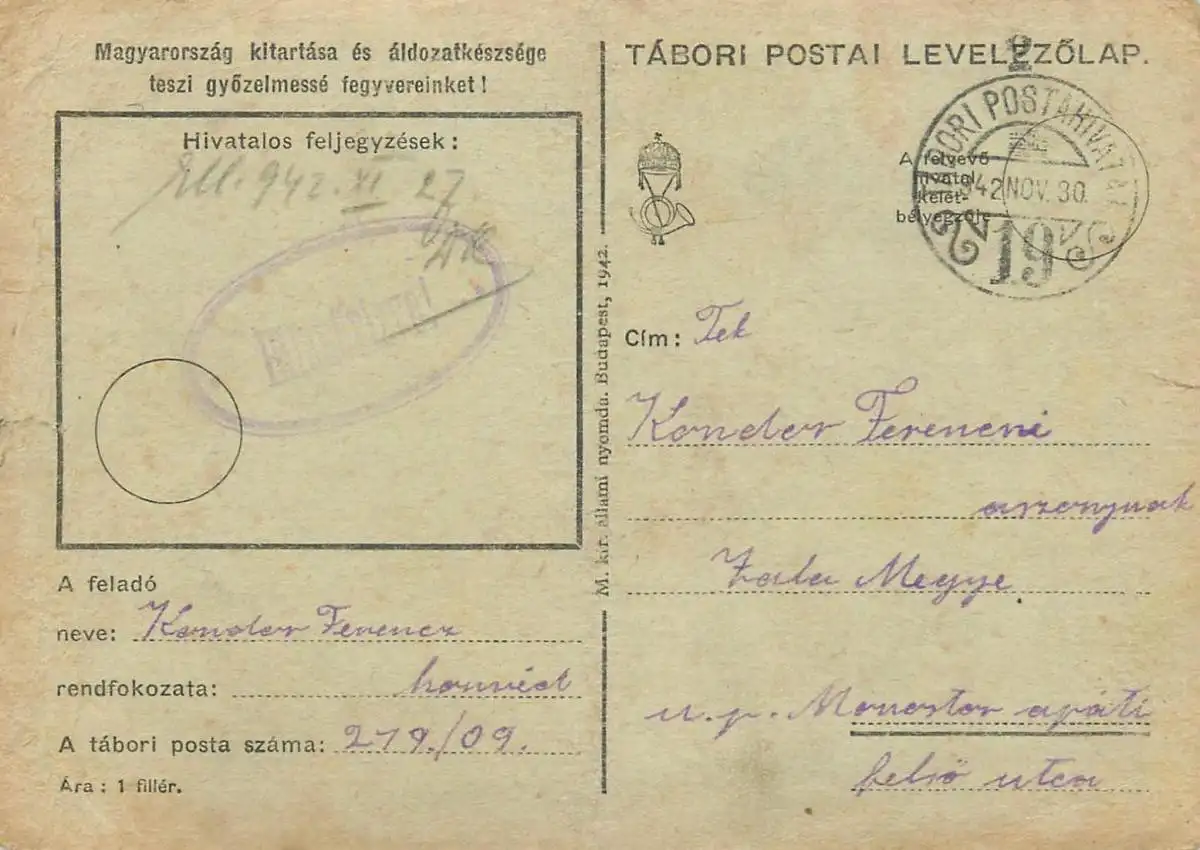 Magyarország kitartása és áldozatkészsége
teszi győzelmessé fegyvereinket!
Hivatalos feljegyzések:
Ell. 942. XI 27
A feladó
neve: Kondor Ferencz
rendfokozata: honvéd
A tábori posta száma: 219./09.
Ára: 1 fillér.
M. kir. állami nyomda. Budapest, 1942.
TÁBORI POSTAI LEVELEZŐLAP.
TÁBORI POSTAHIVATAL
A felvevő
hivatal
kelet-
bélyegzője
942 NOV. 30.
19
Cím: Tek
Kondor Ferencné
aszonynak
Zala Megye
u. p. Monostor apáti
felső utca